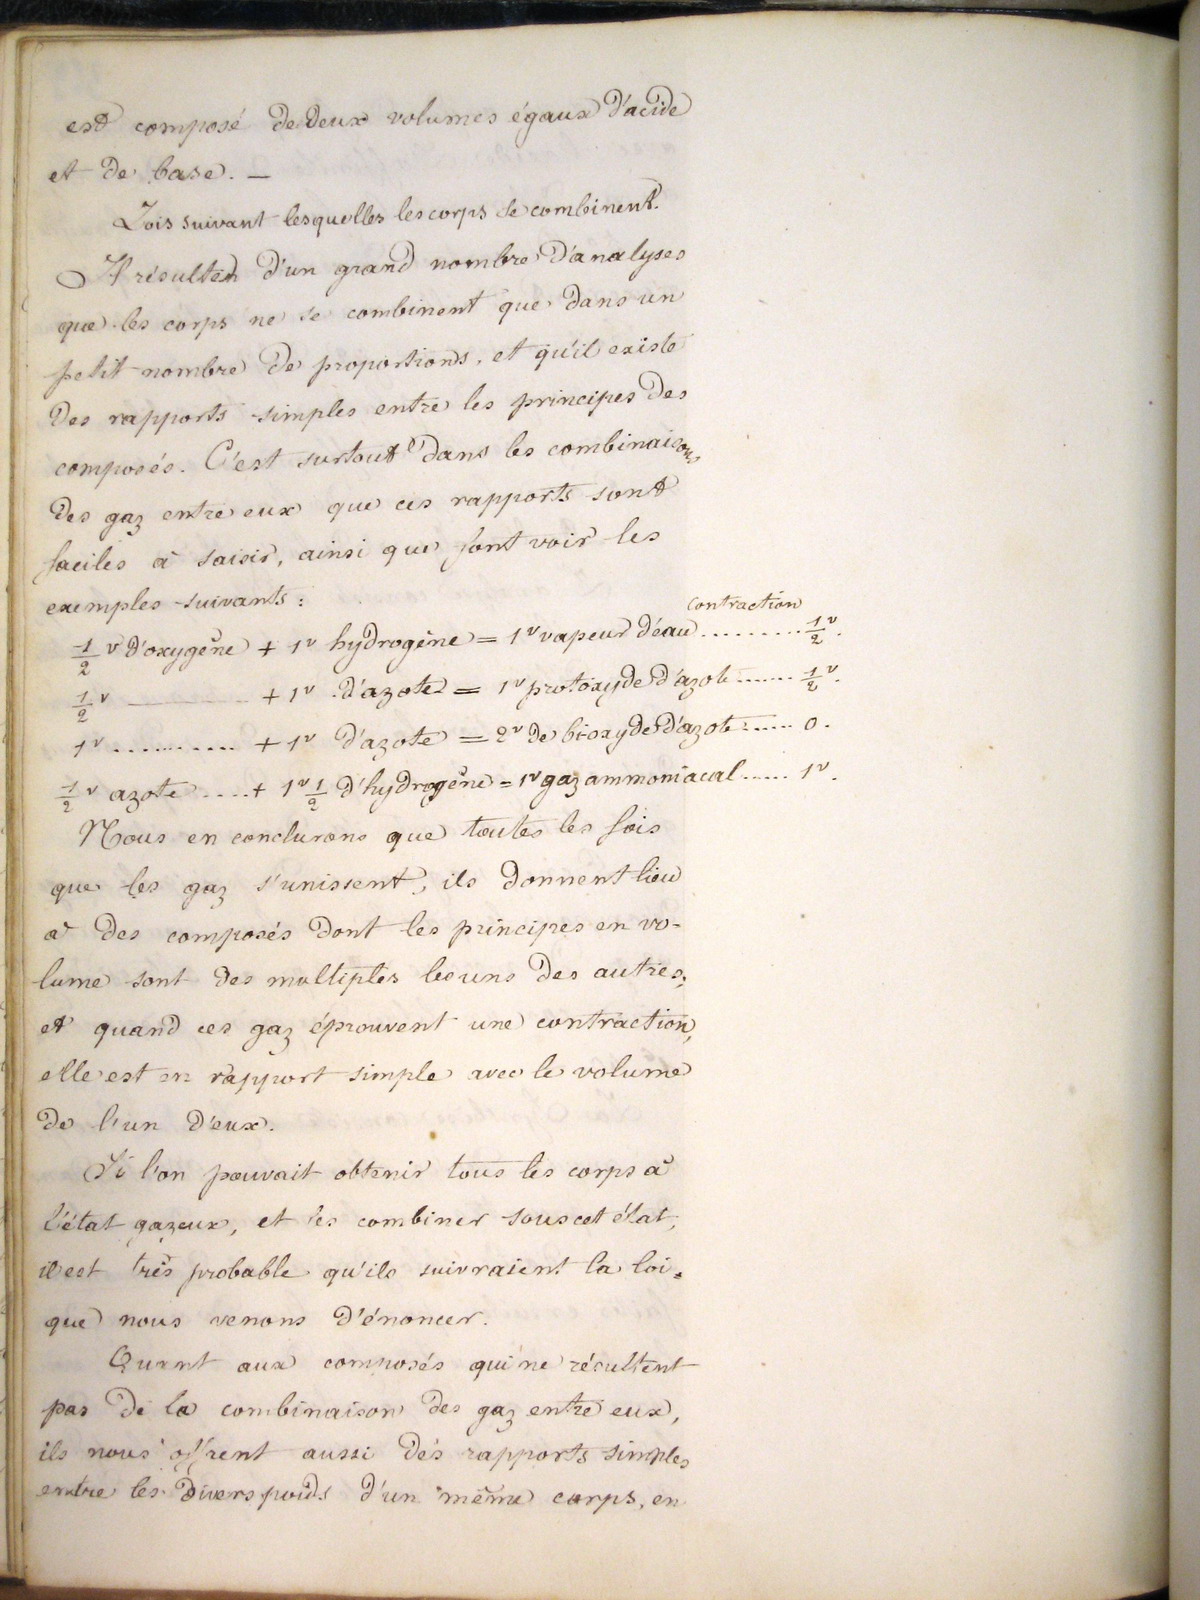 est composé de deux volumes égaux d'acide
et de base. —
Lois suivant lesquelles les corps se combinent.
Il résulte d'un grand nombre d'analyses
que les corps ne se combinent que dans un
petit nombre de proportions, et qu'il existe
des rapports simples entre les principes des
composés. C'est surtout dans les combinaisons
des gaz entre eux que ces rapports sont
faciles à saisir, ainsi que font voir les
exemples suivants :
contraction
1/2 v d'oxygène + 1v hydrogène = 1v vapeur d'eau ......... 1/2 v.
1/2 v ———— + 1v d'azote = 1v protoxyde d'azote ...... 1/2 v.
1v ............ + 1v d'azote = 2v de bi-oxyde d'azote ...... 0.
1/2 v azote .... + 1v 1/2 d'hydrogène = 1v gaz ammoniacal ..... 1v.
Nous en conclurons que toutes les fois
que les gaz s'unissent, ils donnent lieu
à des composés dont les principes en vo-
lume sont des multiples les uns des autres;
et quand ces gaz éprouvent une contraction,
elle est en rapport simple avec le volume
de l'un d'eux.
Si l'on pouvait obtenir tous les corps à
l'état gazeux, et les combiner sous cet état,
il est très probable qu'ils suivraient la loi
que nous venons d'énoncer.
Quant aux composés qui ne résultent
pas de la combinaison des gaz entre eux,
ils nous offrent aussi des rapports simples
entre les divers poids d'un même corps, en